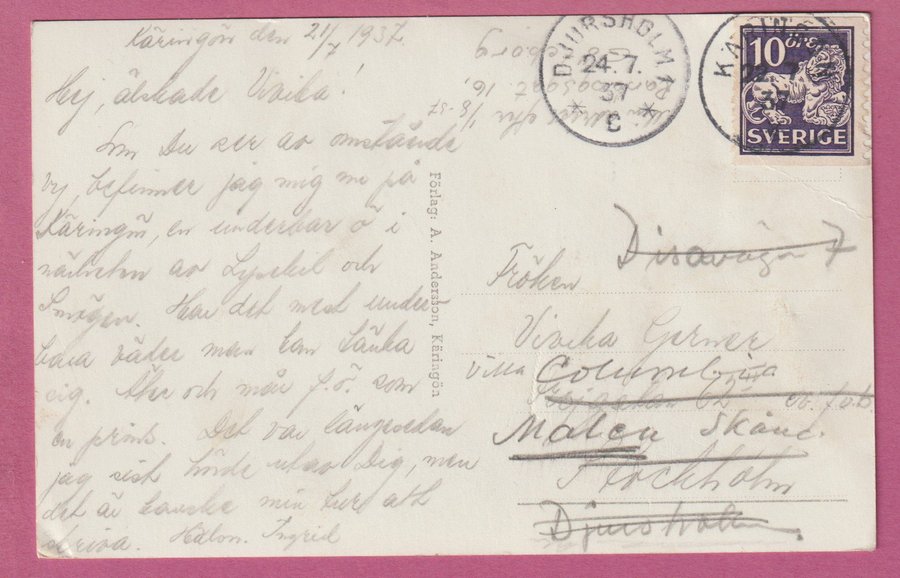 Käringön den 21/7 1937.
Hej, älskade Viveka!
Som Du ser av omstående
vy, befinner jag mig nu på
Käringön, en underbar ö i
närheten av Lysekil och
Smögen. Har det mest under-
bara väder man kan tänka
sig. Äter och mår f.ö. som
en prins. Det var länge sedan
jag sist hörde utav Dig, men
det är kanske min tur att
skriva. Hälsn. Ingrid
Förlag: A. Andersson, Käringön
1/8-37
DJURSHOLM 1
24.7.
37
C
KÄRING
10 ÖRE
SVERIGE
Disavägen 7
Fröken
Viveka Gerner
Villa Columbina
62
Malen Skåne.
Stockholm
Djursholm